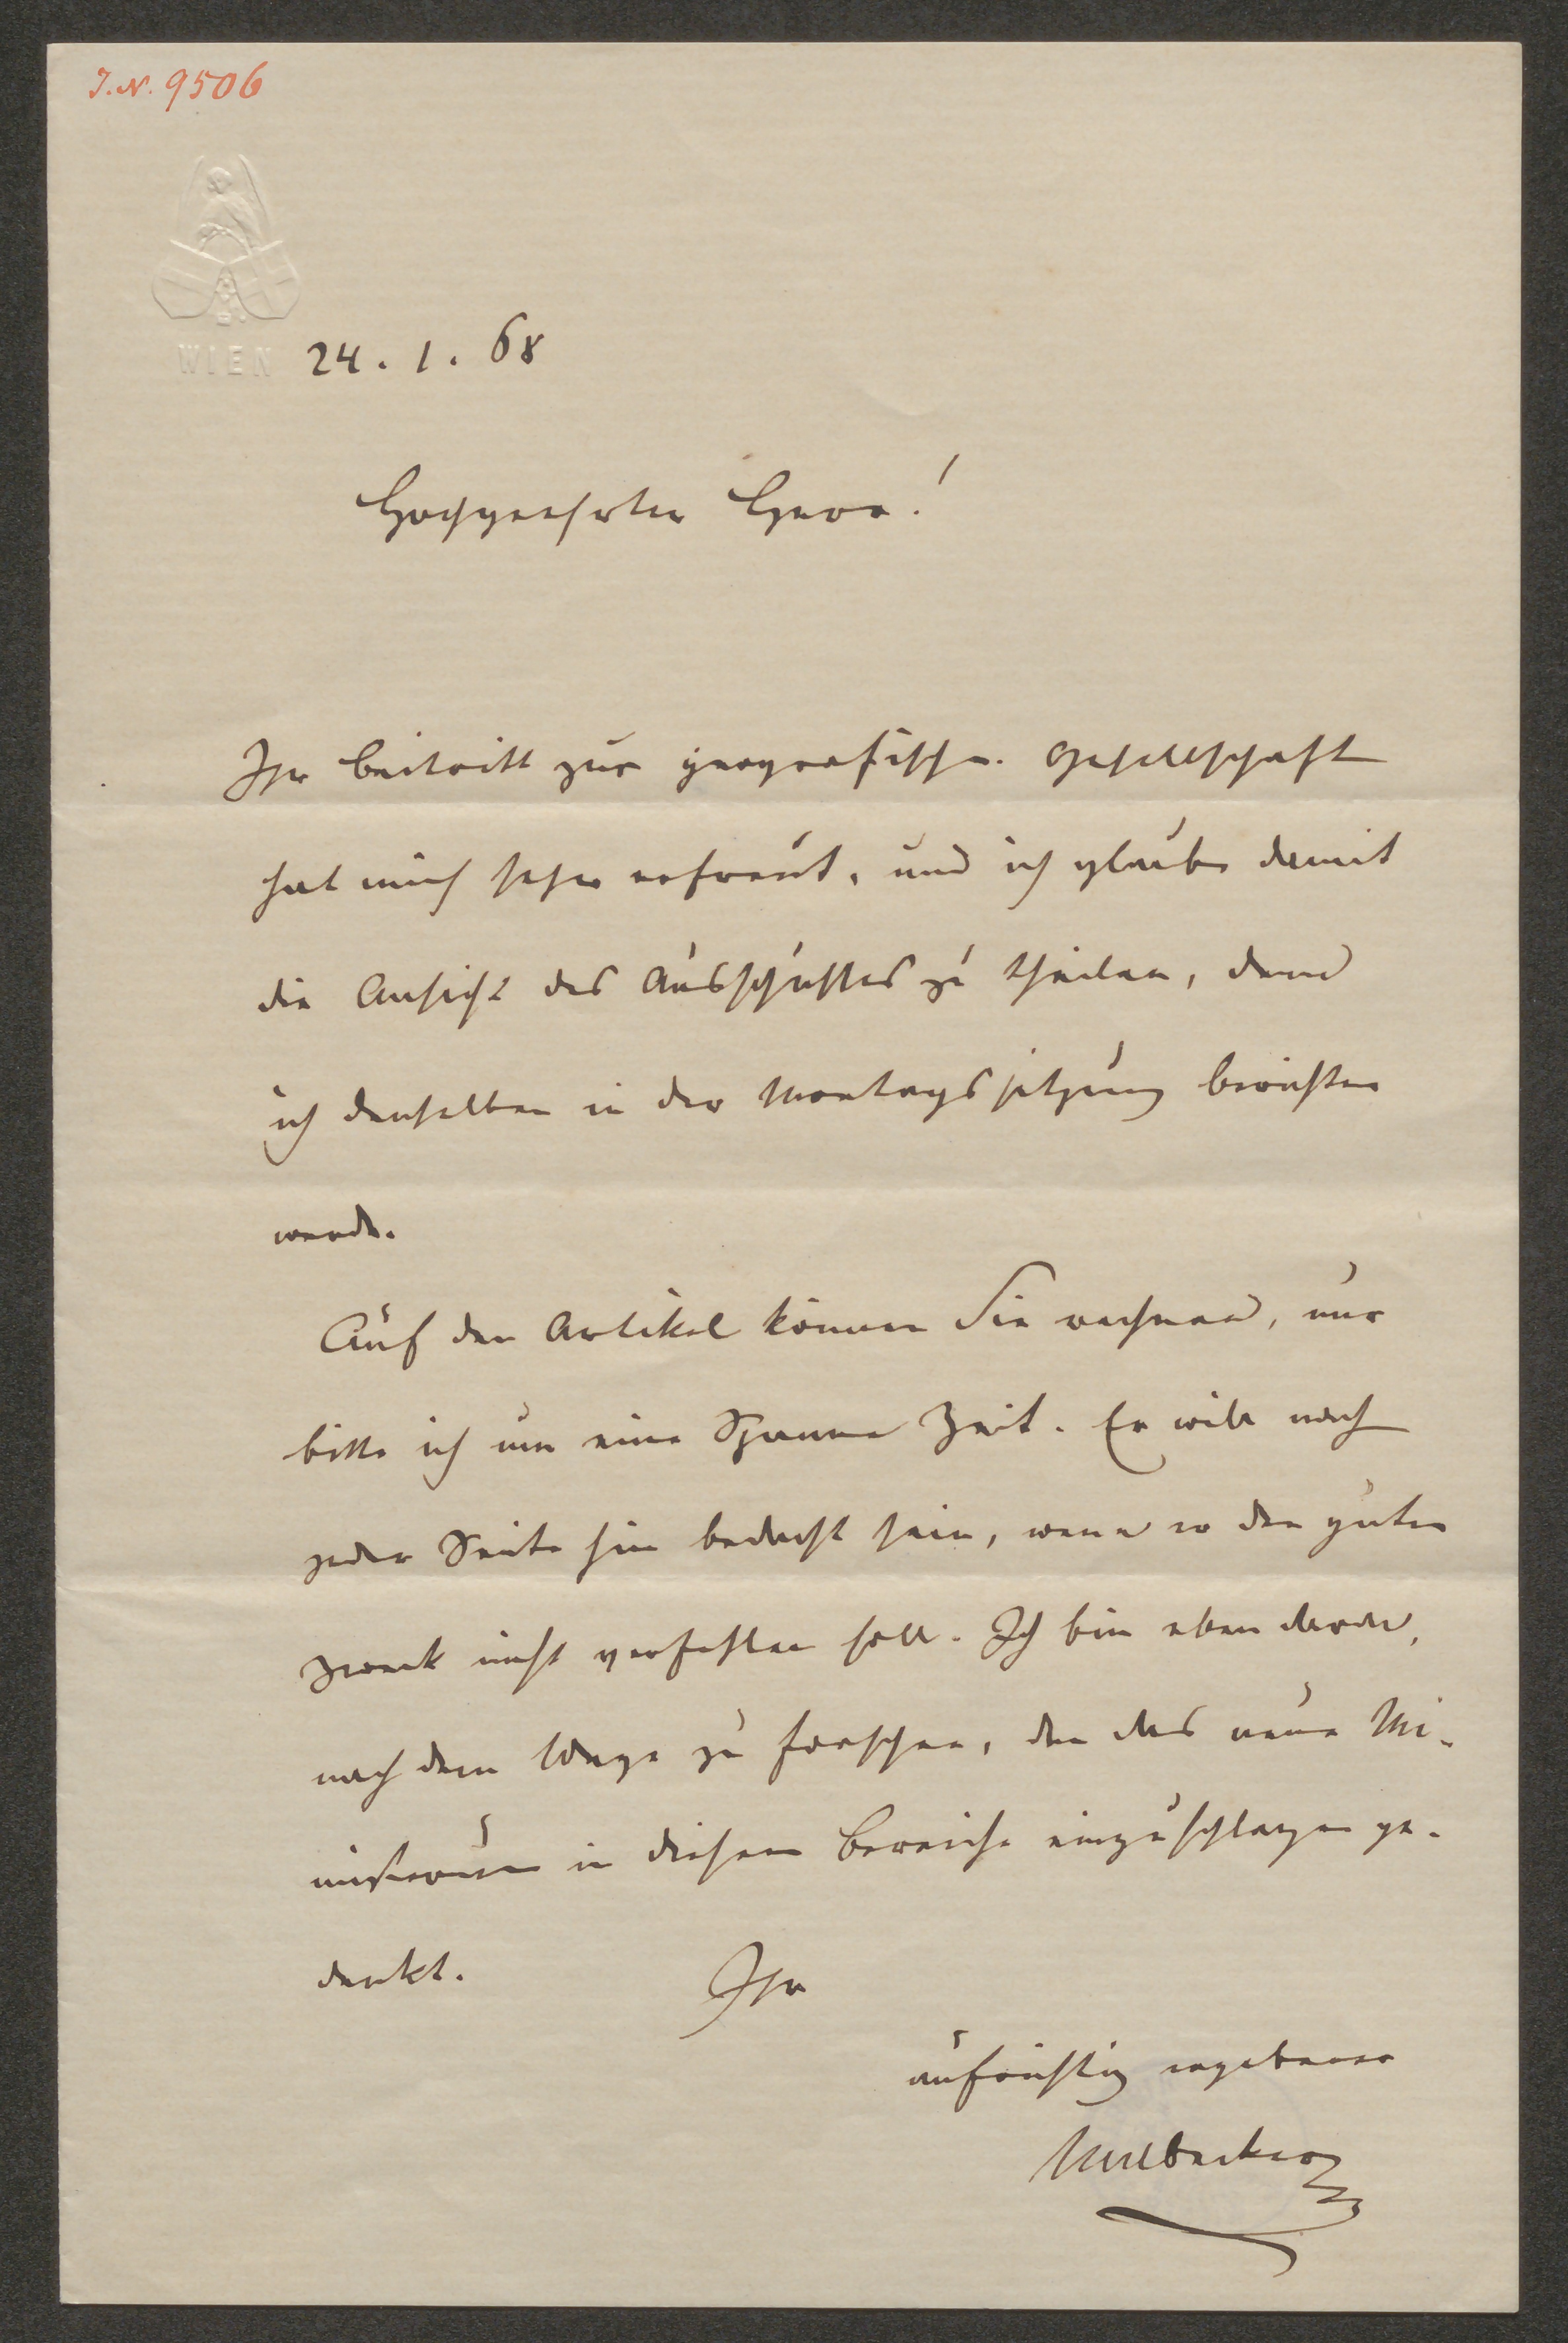 J.N. 9506
WIEN 24. 1. 68
Hochgeehrter Herr!
Ihr Beitritt zur geografischen Gesellschaft
hat mich sehr erfreut, und ich glaube damit
die Ansicht des Ausschusses zu theilen, denn
ich denselben in der Montagssitzung berichten
werde.
Auf den Artikel können Sie rechnen, nur
bitte ich um eine Spanne Zeit. Er will nach
jeder Seite hin bedacht sein, wenn er den guten
Zweck nicht verfehlen soll. Ich bin eben daran,
nach dem Wege zu forschen, den das neue Mi-
nisterium in diesem Bereiche einzuschlagen ge-
denkt.
Ihr
aufrichtig ergebener
MABecker